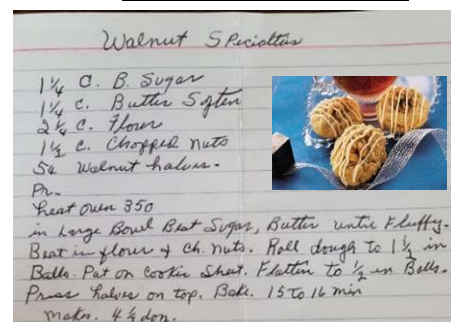 Walnut Specialties
1 1/4 C. B. Sugar
1 1/4 c. Butter Soften
2 1/4 c. Flour
1 1/2 c. Chopped nuts
54 Walnut halves.
Pr.
heat oven 350
in Large Bowl Beat Sugar, Butter until Fluffy.
Beat in flour & Ch. nuts. Roll dough to 1 1/2 in
Balls. Put on Cookie Sheet. Flatten to 1/2 in Balls.
Press halves on top. Bake. 15 To 16 min
Makes. 4 1/2 don.